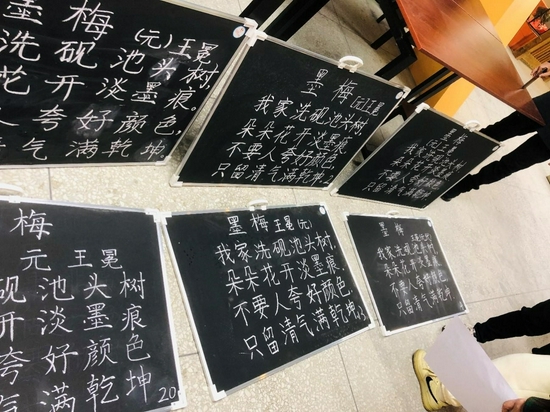 墨梅
(元)王冕
洗砚池头树,
花开淡墨痕.
人夸好颜色,
清气满乾坤
墨梅(元)王冕
我家洗砚池头树
朵朵花开淡墨痕
不要人夸好颜色
只留清气满乾坤
墨梅
(元)
我家洗砚池头树
朵朵花开淡墨痕
不要人夸好颜色
只留清气满乾坤
梅
元 王冕
砚池头树
开淡墨痕
夸好颜色
气满乾坤
20
墨梅 王冕(元)
我家洗砚池头树.
朵朵花开淡墨痕.
不要人夸好颜色
只留清气满乾坤
墨梅
我家洗砚池头树
朵朵花开淡墨痕
不要人夸好颜色
只留清气满乾坤